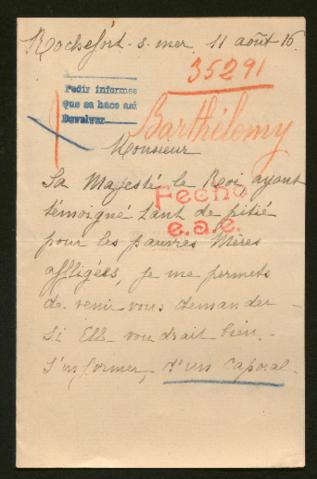 Rochefort-s-mer, 11 août 16.
35291
Pedir informes
Que se hace así
Devolver
Barthélemy
Monsieur
Sa Majesté le Roi ayant
témoigné tant de pitié
Fecho
e.a.e.
pour les pauvres Mères
affligées, je me permets
de venir vous demander
Si Elle voudrait bien
S'informer, d'un Caporal